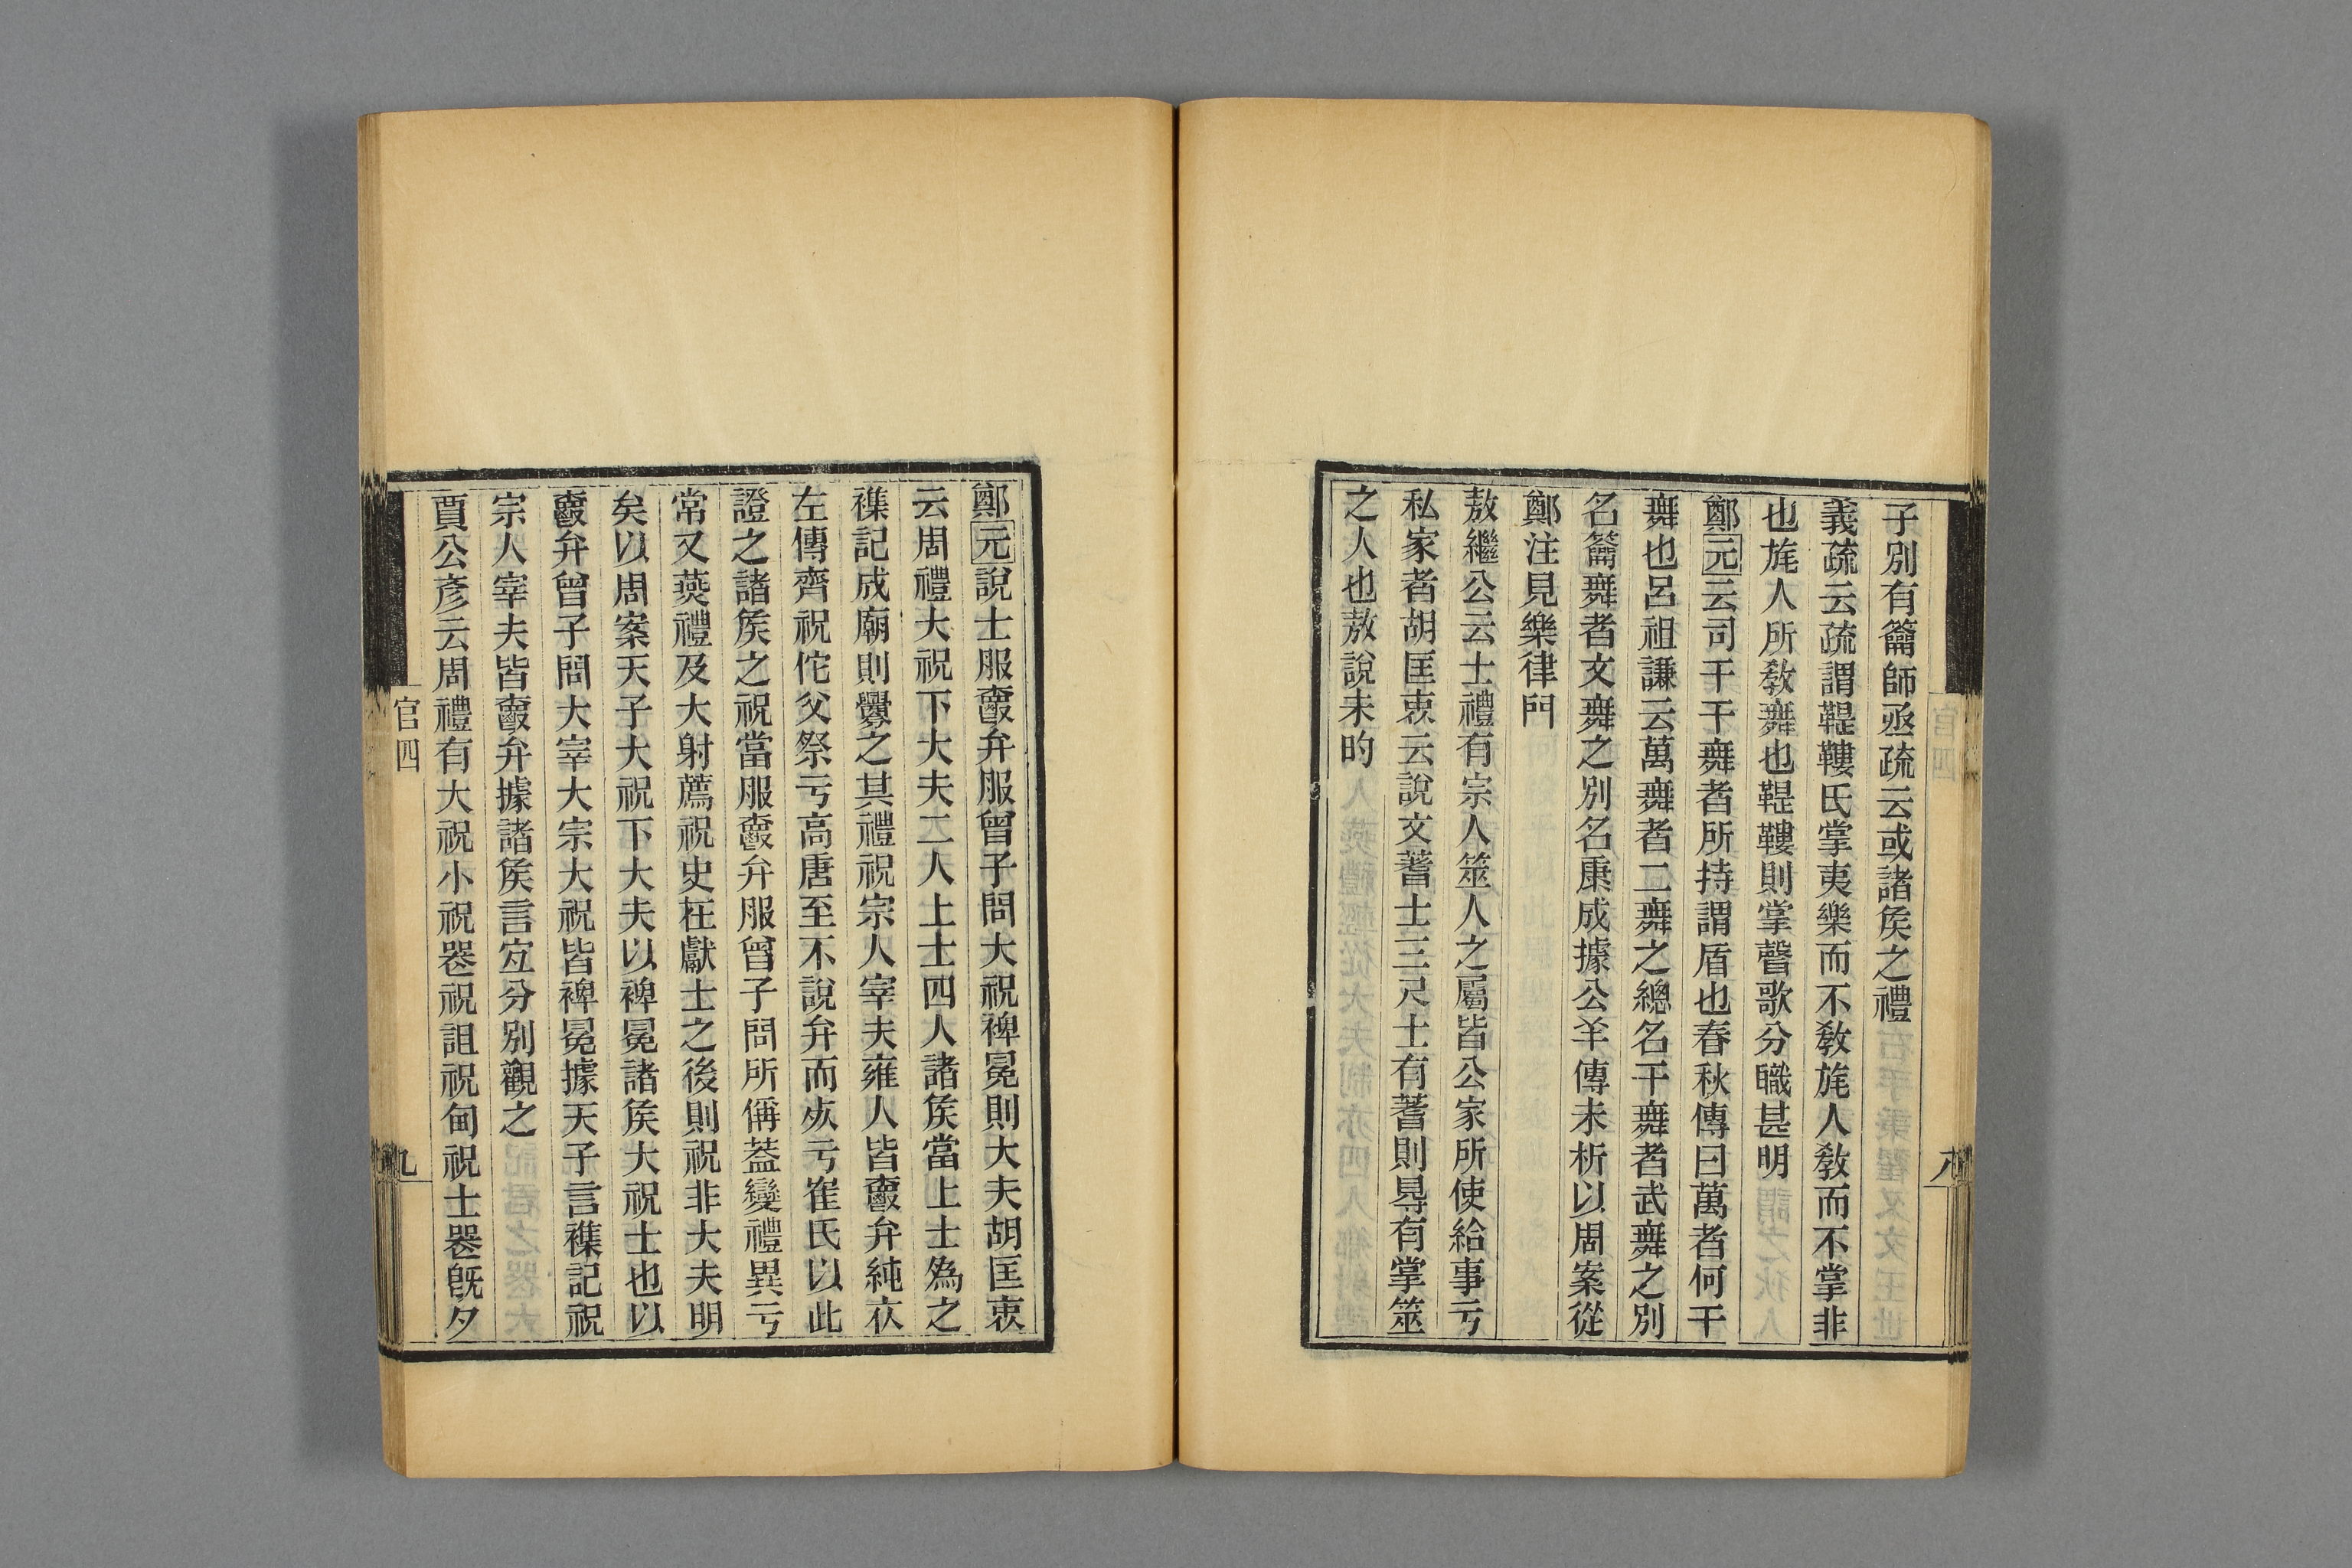 子別有籥師丞疏云或諸矦之禮
義疏云疏謂鞮鞻氏掌夷樂而不敎旄人敎而不掌非
也旄人所敎舞也鞮鞻則掌聲歌分職甚明
鄭元云司干干舞者所持謂盾也春秋傳曰萬者何干
舞也呂祖謙云萬舞者二舞之總名干舞者武舞之別
名籥舞者文舞之別名康成據公羊傳未析以周案從
鄭注見樂律門
敖繼公云士禮有宗人筮人之屬皆公家所使給事亏
私家者胡匡衷云說文蓍士三尺士有蓍則㝵有掌筮
之人也敖說未旳
八
鄭元說士服爵弁服曾子問大祝裨冕則大夫胡匡衷
云周禮大祝下大夫二人上士四人諸矦當上士為之
襍記成廟則釁之其禮祝宗人宰夫雍人皆爵弁純衣
左傳齊祝佗父祭亏高唐至不說弁而死亏崔氏以此
證之諸矦之祝當服爵弁服曾子問所偁蓋變禮異亏
常又燕禮及大射薦祝史在獻士之後則祝非大夫明
矣以周案天子大祝下大夫以裨冕諸矦大祝士也以
爵弁曾子問大宰大宗大祝皆裨冕據天子言襍記祝
宗人宰夫皆爵弁據諸矦言宐分別觀之
賈公彥云周禮有大祝小祝喪祝詛祝甸祝士喪旣夕
官四
九